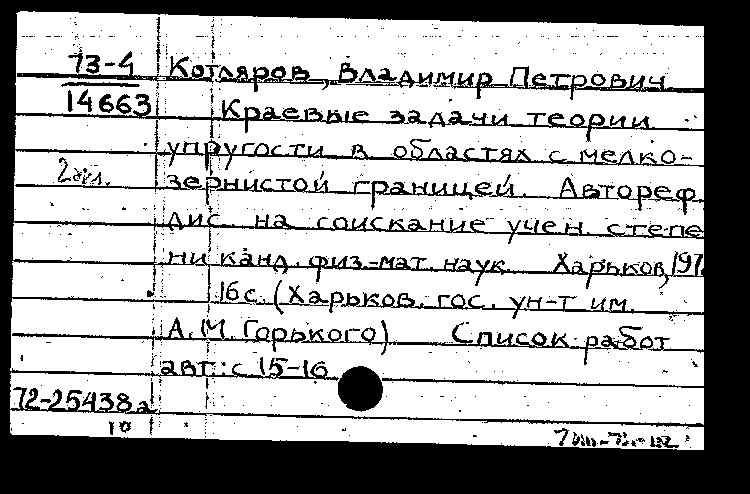 73-4
14663
2 экз.
Котляров, Владимир Петрович
Краевые задачи теории
упругости в областях с мелко-
зернистой границей. Автореф.
дис. на соискание учен. степе
ни канд. физ.-мат. наук. Харьков, 197
16 с. (Харьков. гос. ун-т им.
А.М. Горького) Список работ
авт.: с. 15-16
72-25438а
10